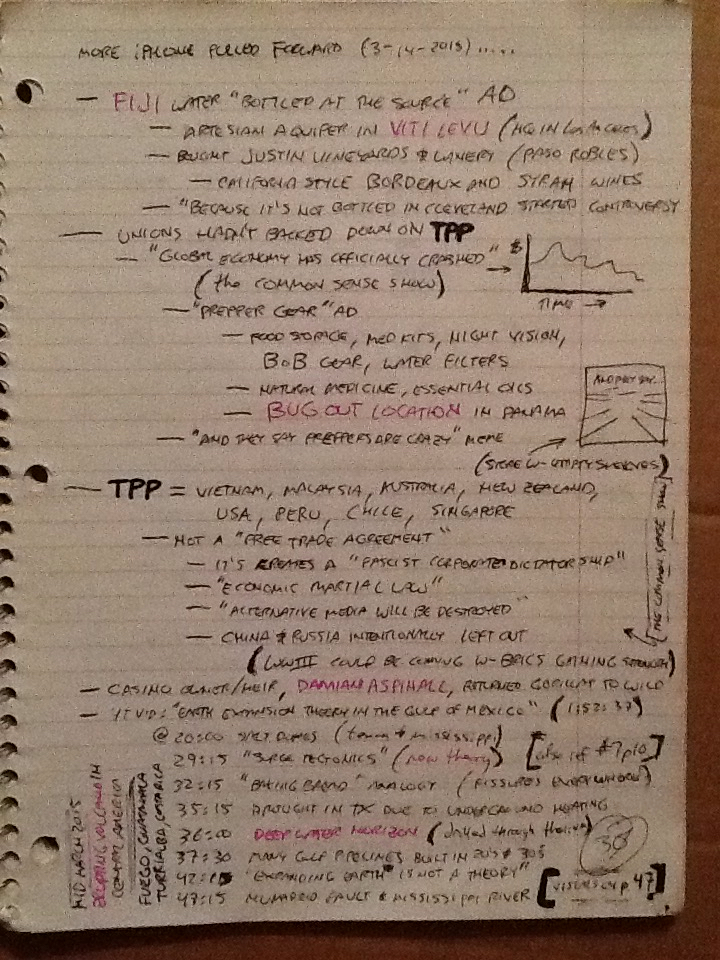 MORE iPHONE PULLED FORWARD (3-14-2015) .....
— FIJI WATER "BOTTLED AT THE SOURCE" AD
— ARTESIAN AQUIFER IN VITI LEVU (HQ IN Los Angeles)
— BOUGHT JUSTIN VINEYARDS & WINERY (PASO ROBLES)
— CALIFORNIA STYLE BORDEAUX AND SYRAH WINES
— "BECAUSE IT'S NOT BOTTLED IN CLEVELAND STARTED CONTROVERSY
— UNIONS HADN'T BACKED DOWN ON TPP
— "GLOBAL ECONOMY HAS OFFICIALLY CRASHED" →
(the COMMON SENSE SHOW)
$
TIME →
— "PREPPER GEAR" AD
— FOOD STORAGE, MED KITS, NIGHT VISION,
BoB GEAR, WATER FILTERS
— NATURAL MEDICINE, ESSENTIAL OILS
— BUG OUT LOCATION IN PANAMA
— "AND THEY SAY PREPPERS ARE CRAZY" MEME
AND THEY SAY...
(STORE W- EMPTY SHELVES)
— TPP = VIETNAM, MALAYSIA, AUSTRALIA, NEW ZEALAND,
USA, PERU, CHILE, SINGAPORE
— NOT A "FREE TRADE AGREEMENT"
— IT'S CREATES A "FASCIST CORPORATE DICTATORSHIP"
— "ECONOMIC MARTIAL LAW"
— "ALTERNATIVE MEDIA WILL BE DESTROYED"
— CHINA & RUSSIA INTENTIONALLY LEFT OUT
(WWIII COULD BE COMING W- BRICS GAINING STRENGTH)
THE COMMON SENSE SHOW
— CASINO OWNER/HEIR, DAMIAN ASPINALL, RETURNED GORILLAS TO WILD
— YT VID: "EARTH EXPANSION THEORY IN THE GULF OF MEXICO" (1:52:37)
@ 20:00 SALT DOMES (texas & mississippi)
29:15 "SURGE TECTONICS" (new theory) [also ref #7 p10]
32:15 "BAKING BREAD" ANALOGY (FISSURES EVERYWHERE)
35:15 DROUGHT IN TX DUE TO UNDERGROUND HEATING
36:00 DEEPWATER HORIZON (drilled through)
37:30 MANY GULF PIPELINES BUILT IN 20'S & 30'S
42: "EXPANDING EARTH" IS NOT A THEORY"
47:15 NEW MADRID FAULT & MISSISSIPPI RIVER [VISUALS @ p 47]
38
MID MARCH 2015
ERUPTING VOLCANO IN
CENTRAL AMERICA
FUEGO, GUATEMALA
TURRIALBA, COSTA RICA